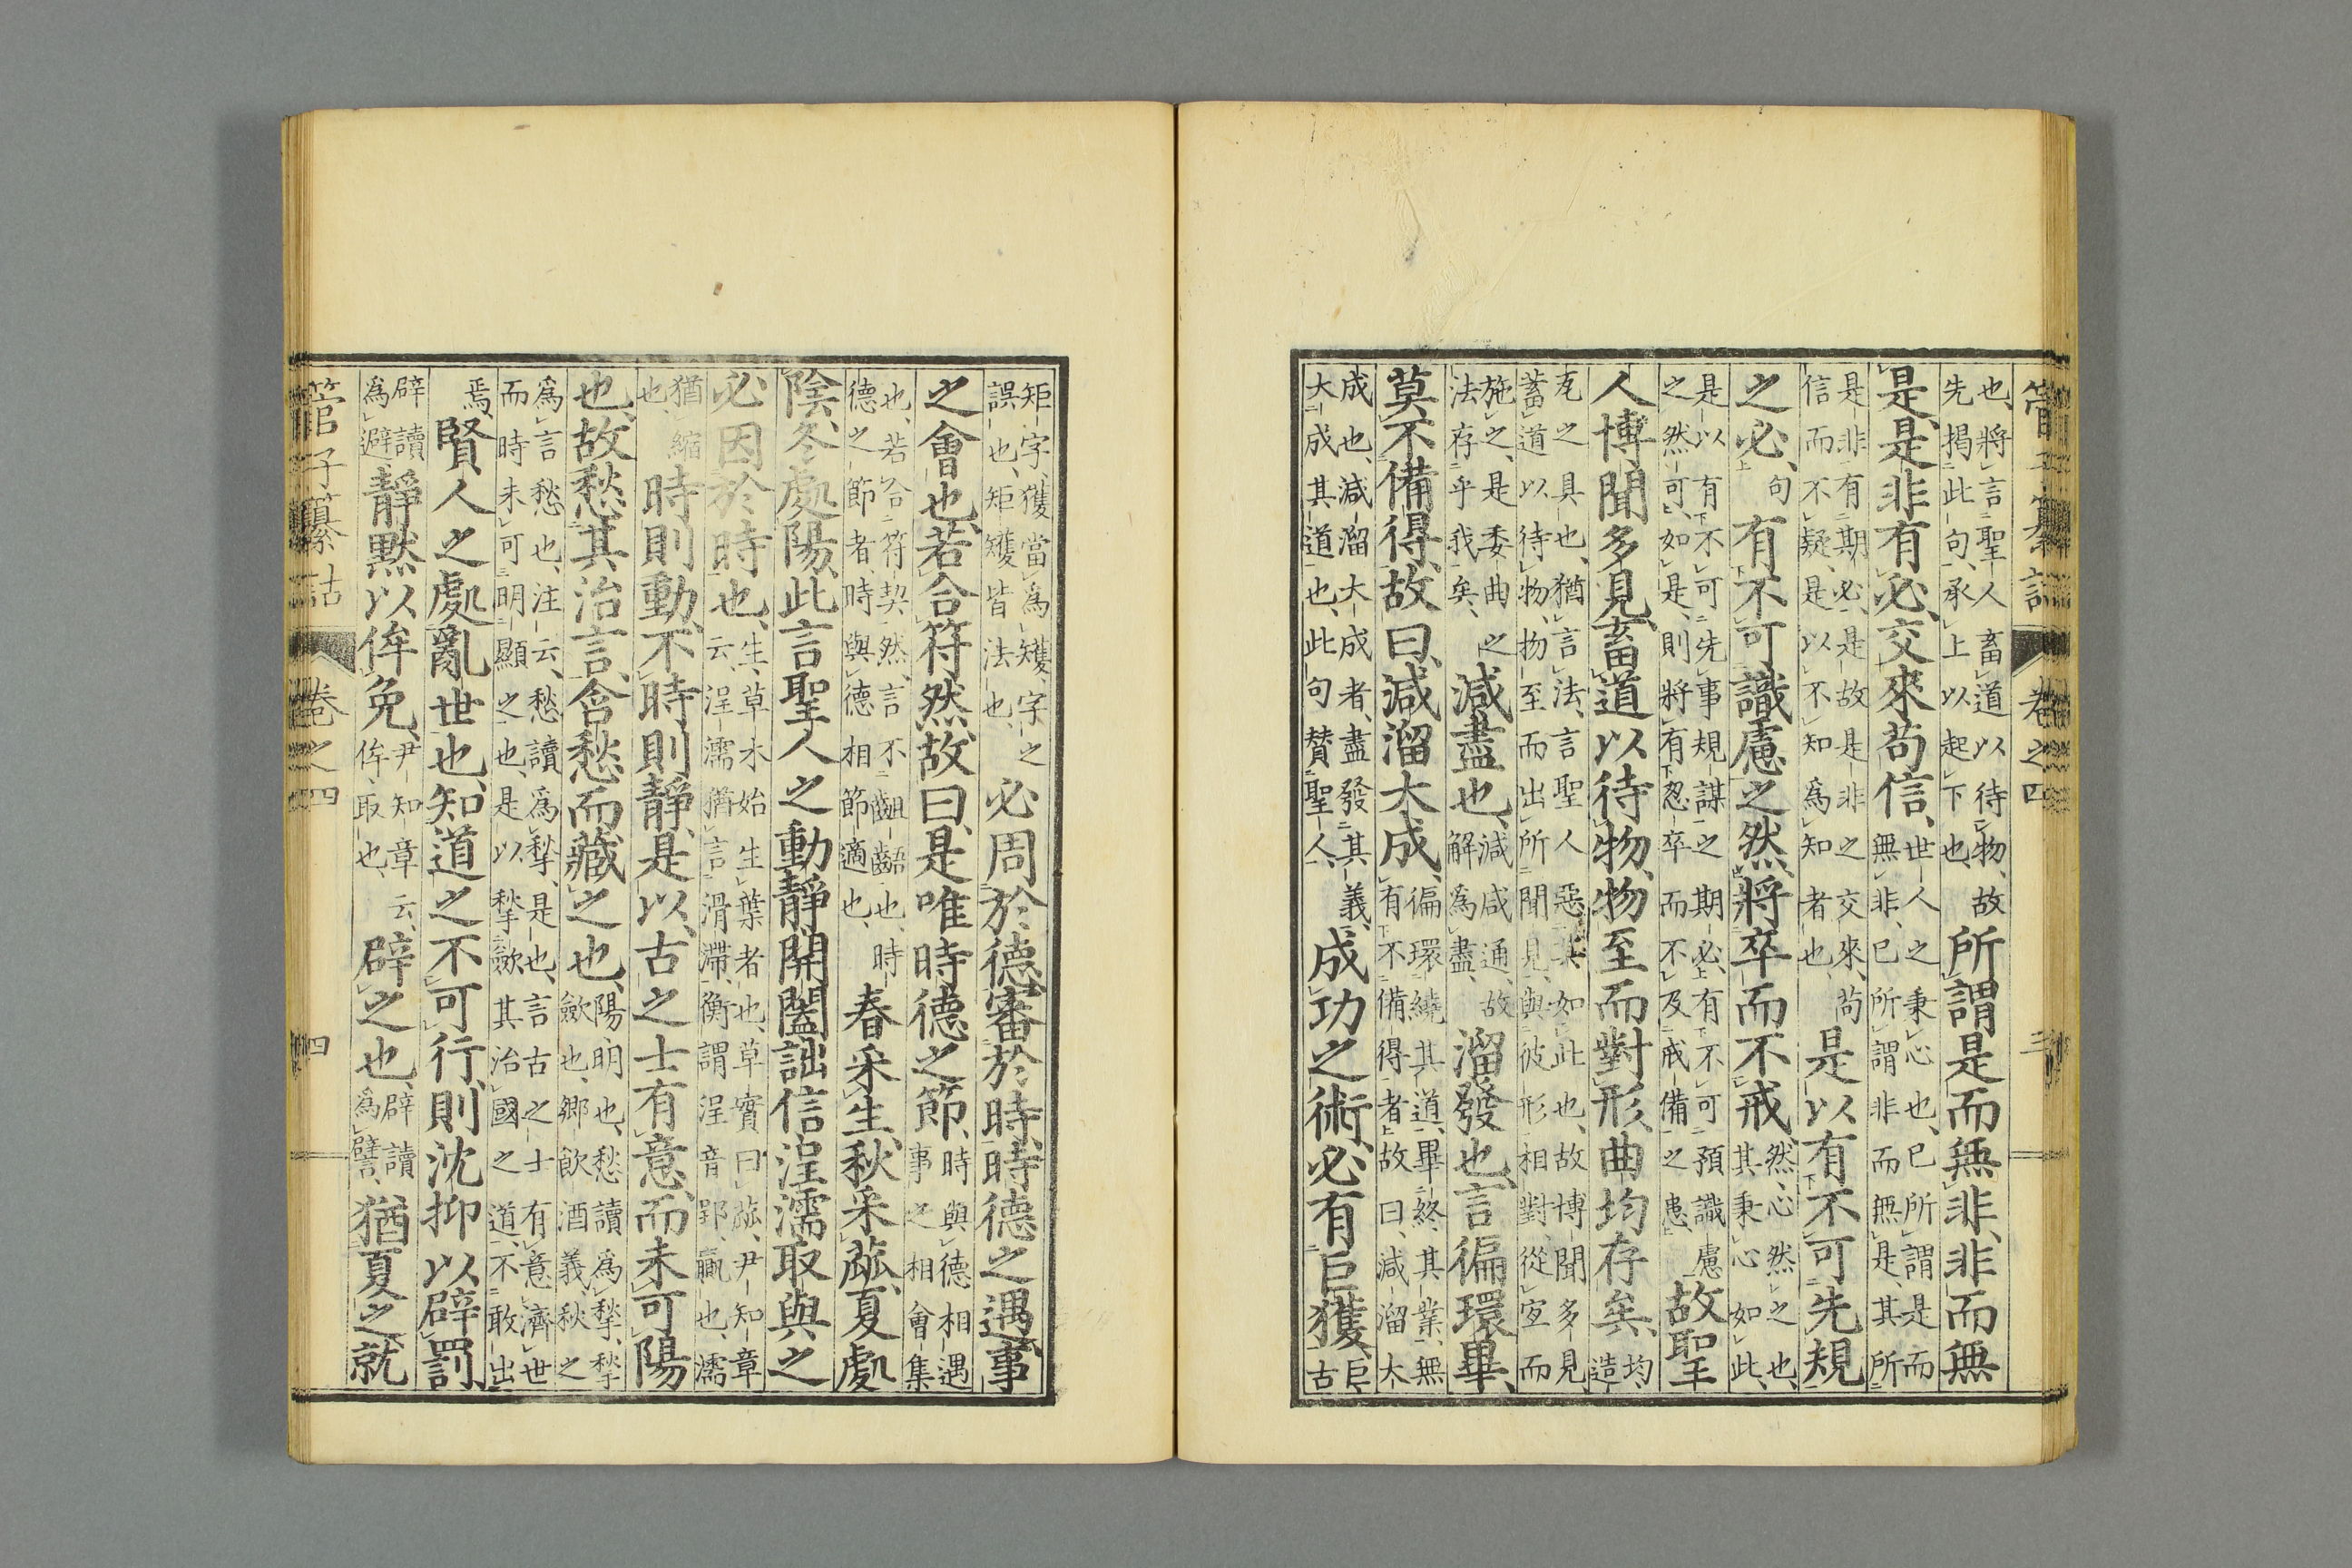 管子纂詁　卷之四　三
也、將言聖人畜道以待物、故
先揭此句、承上以起下也、
所謂是而無非、非而無
是、是非有必、交來苟信、
世人之秉心也、已所謂是而
無非、已所謂非而無是、其所
是非有期必、是故是非之交來、苟
信而不疑、是以不知為知者也、
是以有不可先規
之必、句有不可識慮之然、將卒而不戒、
然、心然之也、
其秉心如此、
是以有不可先事規謀之期必、有不可預識慮
之然可、如是、則將有忽卒而不及戒備之患、
故聖
人博聞多見、畜道以待物、物至而對形、曲均存矣、
均
造
瓦之具也、猶言法、言聖人惡其如此也、故博聞多見
蓄道以待物、物至而出所聞見、與彼形相對、從宜而
施之、是委曲之
法存乎我矣、
減盡也、
減咸通、故
解為盡、
溜發也、言徧環畢、
莫不備得、故曰、減溜大成、
徧環繞其道、畢終其業、無
有不備得者、故曰、減溜大
成也、減溜大成者、盡發其義、
大成其道也、此句贊聖人、
成功之術、必有巨獲、
巨、
古
矩字、獲當為矱字之
誤也、矩矱皆法也、
必周於德、審於時、時德之遇、事
之會也、若合符然、故曰、是唯時德之節、
時與德相遇
事之相會集
也、若合符契然、言不齟齬也、時
德之節者、時與德相節適也、
春采生、秋采蓏、夏處
陰、冬處陽、此言聖人之動靜、開闔詘信浧濡取與之
必因於時也、
生、草木始生葉者也、草實曰蓏、尹知章
云、浧濡猶言滑滯、衡謂浧音郢、贏也、濡
猶縮
也、
時則動、不時則靜、是以、古之士有意、而未可陽
也、故愁其治言、含愁而藏之也、
陽、明也、愁讀為揫、揫
歛也、鄉飲酒義、秋之
為言愁也、注云、愁讀為揫、是也、言古之士有意濟世
而時未可明顯之也、是以揫歛其治國之道、不敢出
焉、
賢人之處亂世也、知道之不可行、則沈抑以辟罰
辟讀
為避
靜默以侔免、
尹知章云、
侔、取也、
辟之也、
辟讀
為譬、
猶夏之就
管子纂詁　卷之四　四